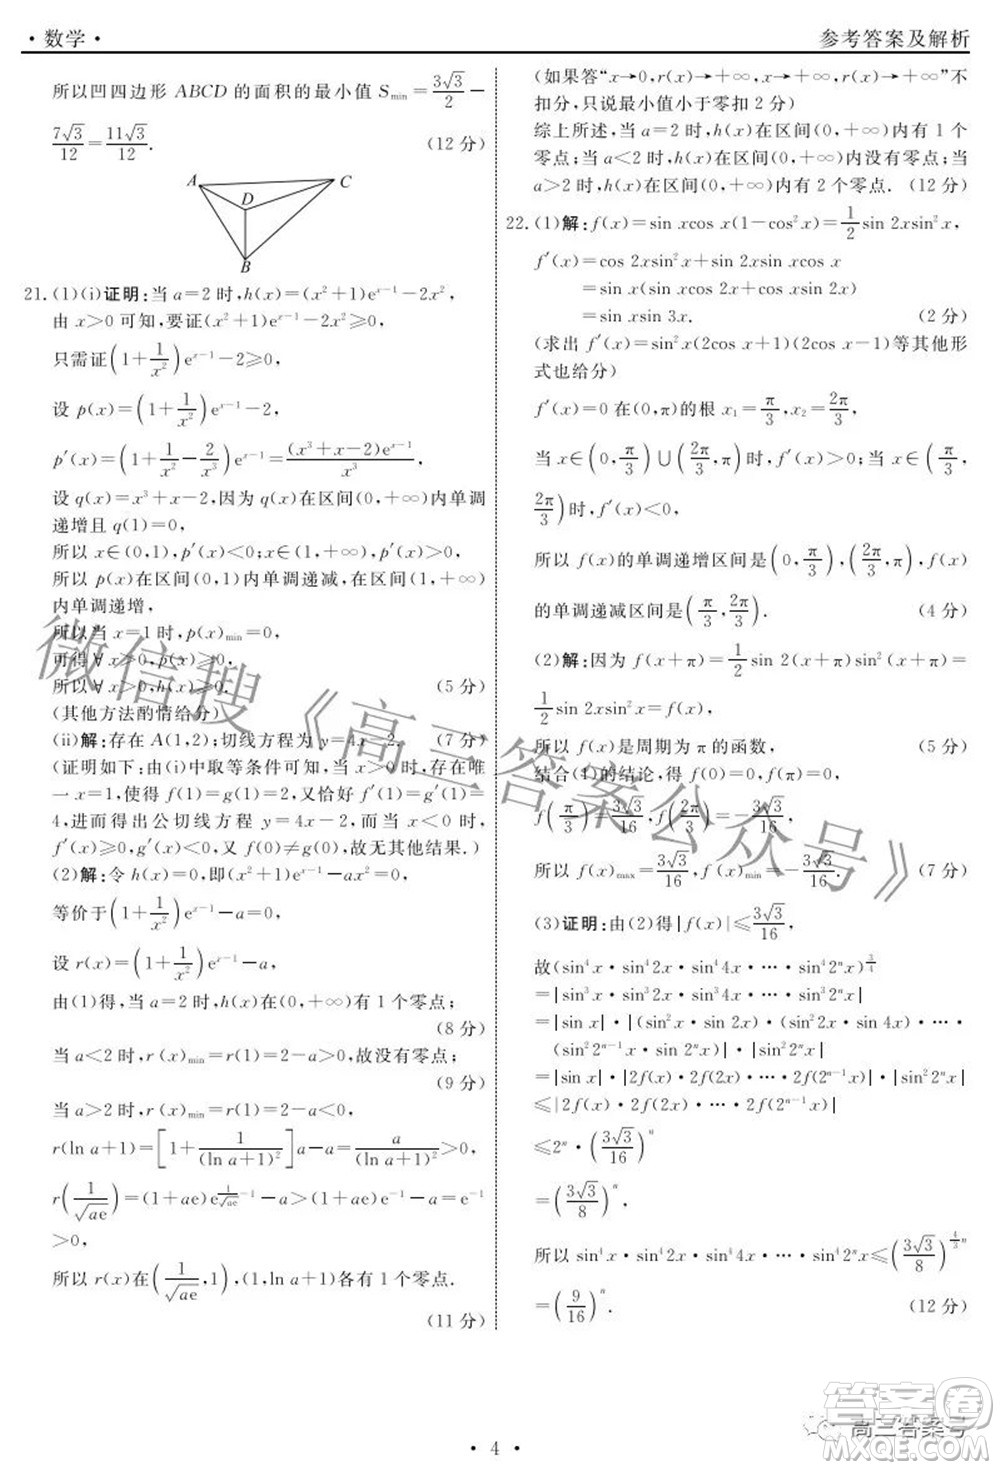 · 数学 ·
参考答案及解析
所以凹四边形 ABCD 的面积的最小值 S_min = 3√3/2 −
7√3/12 = 11√3/12. (12 分)
A
C
D
B
21. (1)(i)证明:当 a=2 时,h(x)=(x²+1)e^(x−1)−2x²,
由 x>0 可知,要证(x²+1)e^(x−1)−2x²≥0,
只需证(1+1/x²)e^(x−1)−2≥0,
设 p(x)=(1+1/x²)e^(x−1)−2,
p′(x)=(1+1/x²−2/x³)e^(x−1)=(x³+x−2)e^(x−1)/x³,
设 q(x)=x³+x−2,因为 q(x)在区间(0,+∞)内单调
递增且 q(1)=0,
所以 x∈(0,1),p′(x)<0;x∈(1,+∞),p′(x)>0,
所以 p(x)在区间(0,1)内单调递减,在区间(1,+∞)
内单调递增,
所以当 x=1 时,p(x)_min=0,
可得∀x>0,p(x)≥0,
所以∀x>0,h(x)≥0. (5 分)
(其他方法酌情给分)
(ii)解:存在 A(1,2);切线方程为 y=4x−2. (7 分)
(证明如下:由(i)中取等条件可知,当 x>0 时,存在唯
一 x=1,使得 f(1)=g(1)=2,又恰好 f′(1)=g′(1)=
4,进而得出公切线方程 y=4x−2,而当 x<0 时,
f′(x)≥0,g′(x)<0,又 f(0)≠g(0),故无其他结果.)
(2)解:令 h(x)=0,即(x²+1)e^(x−1)−ax²=0,
等价于(1+1/x²)e^(x−1)−a=0,
设 r(x)=(1+1/x²)e^(x−1)−a,
由(1)得,当 a=2 时,h(x)在(0,+∞)有 1 个零点;
(8 分)
当 a<2 时,r(x)_min=r(1)=2−a>0,故没有零点;
(9 分)
当 a>2 时,r(x)_min=r(1)=2−a<0,
r(ln a+1)=[1+1/(ln a+1)²]a−a=a/(ln a+1)²>0,
r(1/√ae)=(1+ae)e^(1/√ae −1)−a>(1+ae)e^(−1)−a=e^(−1)
>0,
所以 r(x)在(1/√ae,1),(1,ln a+1)各有 1 个零点.
(11 分)
(如果答“x→0,r(x)→+∞,x→+∞,r(x)→+∞”不
扣分,只说最小值小于零扣 2 分)
综上所述,当 a=2 时,h(x)在区间(0,+∞)内有 1 个
零点;当 a<2 时,h(x)在区间(0,+∞)内没有零点;当
a>2 时,h(x)在区间(0,+∞)内有 2 个零点. (12 分)
22. (1)解:f(x)=sin xcos x(1−cos²x)=1/2 sin 2xsin²x,
f′(x)=cos 2xsin²x+sin 2xsin xcos x
=sin x(cos 2xsin x+sin 2xcos x)
=sin xsin 3x. (2 分)
(求出 f′(x)=sin²x(2cos x+1)(2cos x−1)等其他形
式也给分)
f′(x)=0 在(0,π)的根 x₁=π/3,x₂=2π/3,
当 x∈(0,π/3)∪(2π/3,π)时,f′(x)>0;当 x∈(π/3,
2π/3)时,f′(x)<0,
所以 f(x)的单调递增区间是(0,π/3),(2π/3,π),f(x)
的单调递减区间是(π/3,2π/3). (4 分)
(2)解:因为 f(x+π)=1/2 sin 2(x+π)sin²(x+π)=
1/2 sin 2xsin²x=f(x),
所以 f(x)是周期为 π 的函数, (5 分)
结合(1)的结论,得 f(0)=0,f(π)=0,
f(π/3)=3√3/16,f(2π/3)=−3√3/16,
所以 f(x)_max=3√3/16,f(x)_min=−3√3/16. (7 分)
(3)证明:由(2)得|f(x)|≤3√3/16,
故(sin⁴x·sin⁴2x·sin⁴4x·…·sin⁴2ⁿx)^(3/4)
=|sin³x·sin³2x·sin³4x·…·sin³2ⁿx|
=|sin x|·|(sin²x·sin 2x)·(sin²2x·sin 4x)·…·
(sin²2ⁿ⁻¹x·sin 2ⁿx)|·|sin²2ⁿx|
=|sin x|·|2f(x)·2f(2x)·…·2f(2ⁿ⁻¹x)|·|sin²2ⁿx|
≤|2f(x)·2f(2x)·…·2f(2ⁿ⁻¹x)|
≤2ⁿ·(3√3/16)ⁿ
=(3√3/8)ⁿ.
所以 sin⁴x·sin⁴2x·sin⁴4x·…·sin⁴2ⁿx≤(3√3/8)^(4/3 n)
=(9/16)ⁿ. (12 分)
微信搜《高三答案公众号》
答案圈
高三答案号
MXQE.COM
· 4 ·